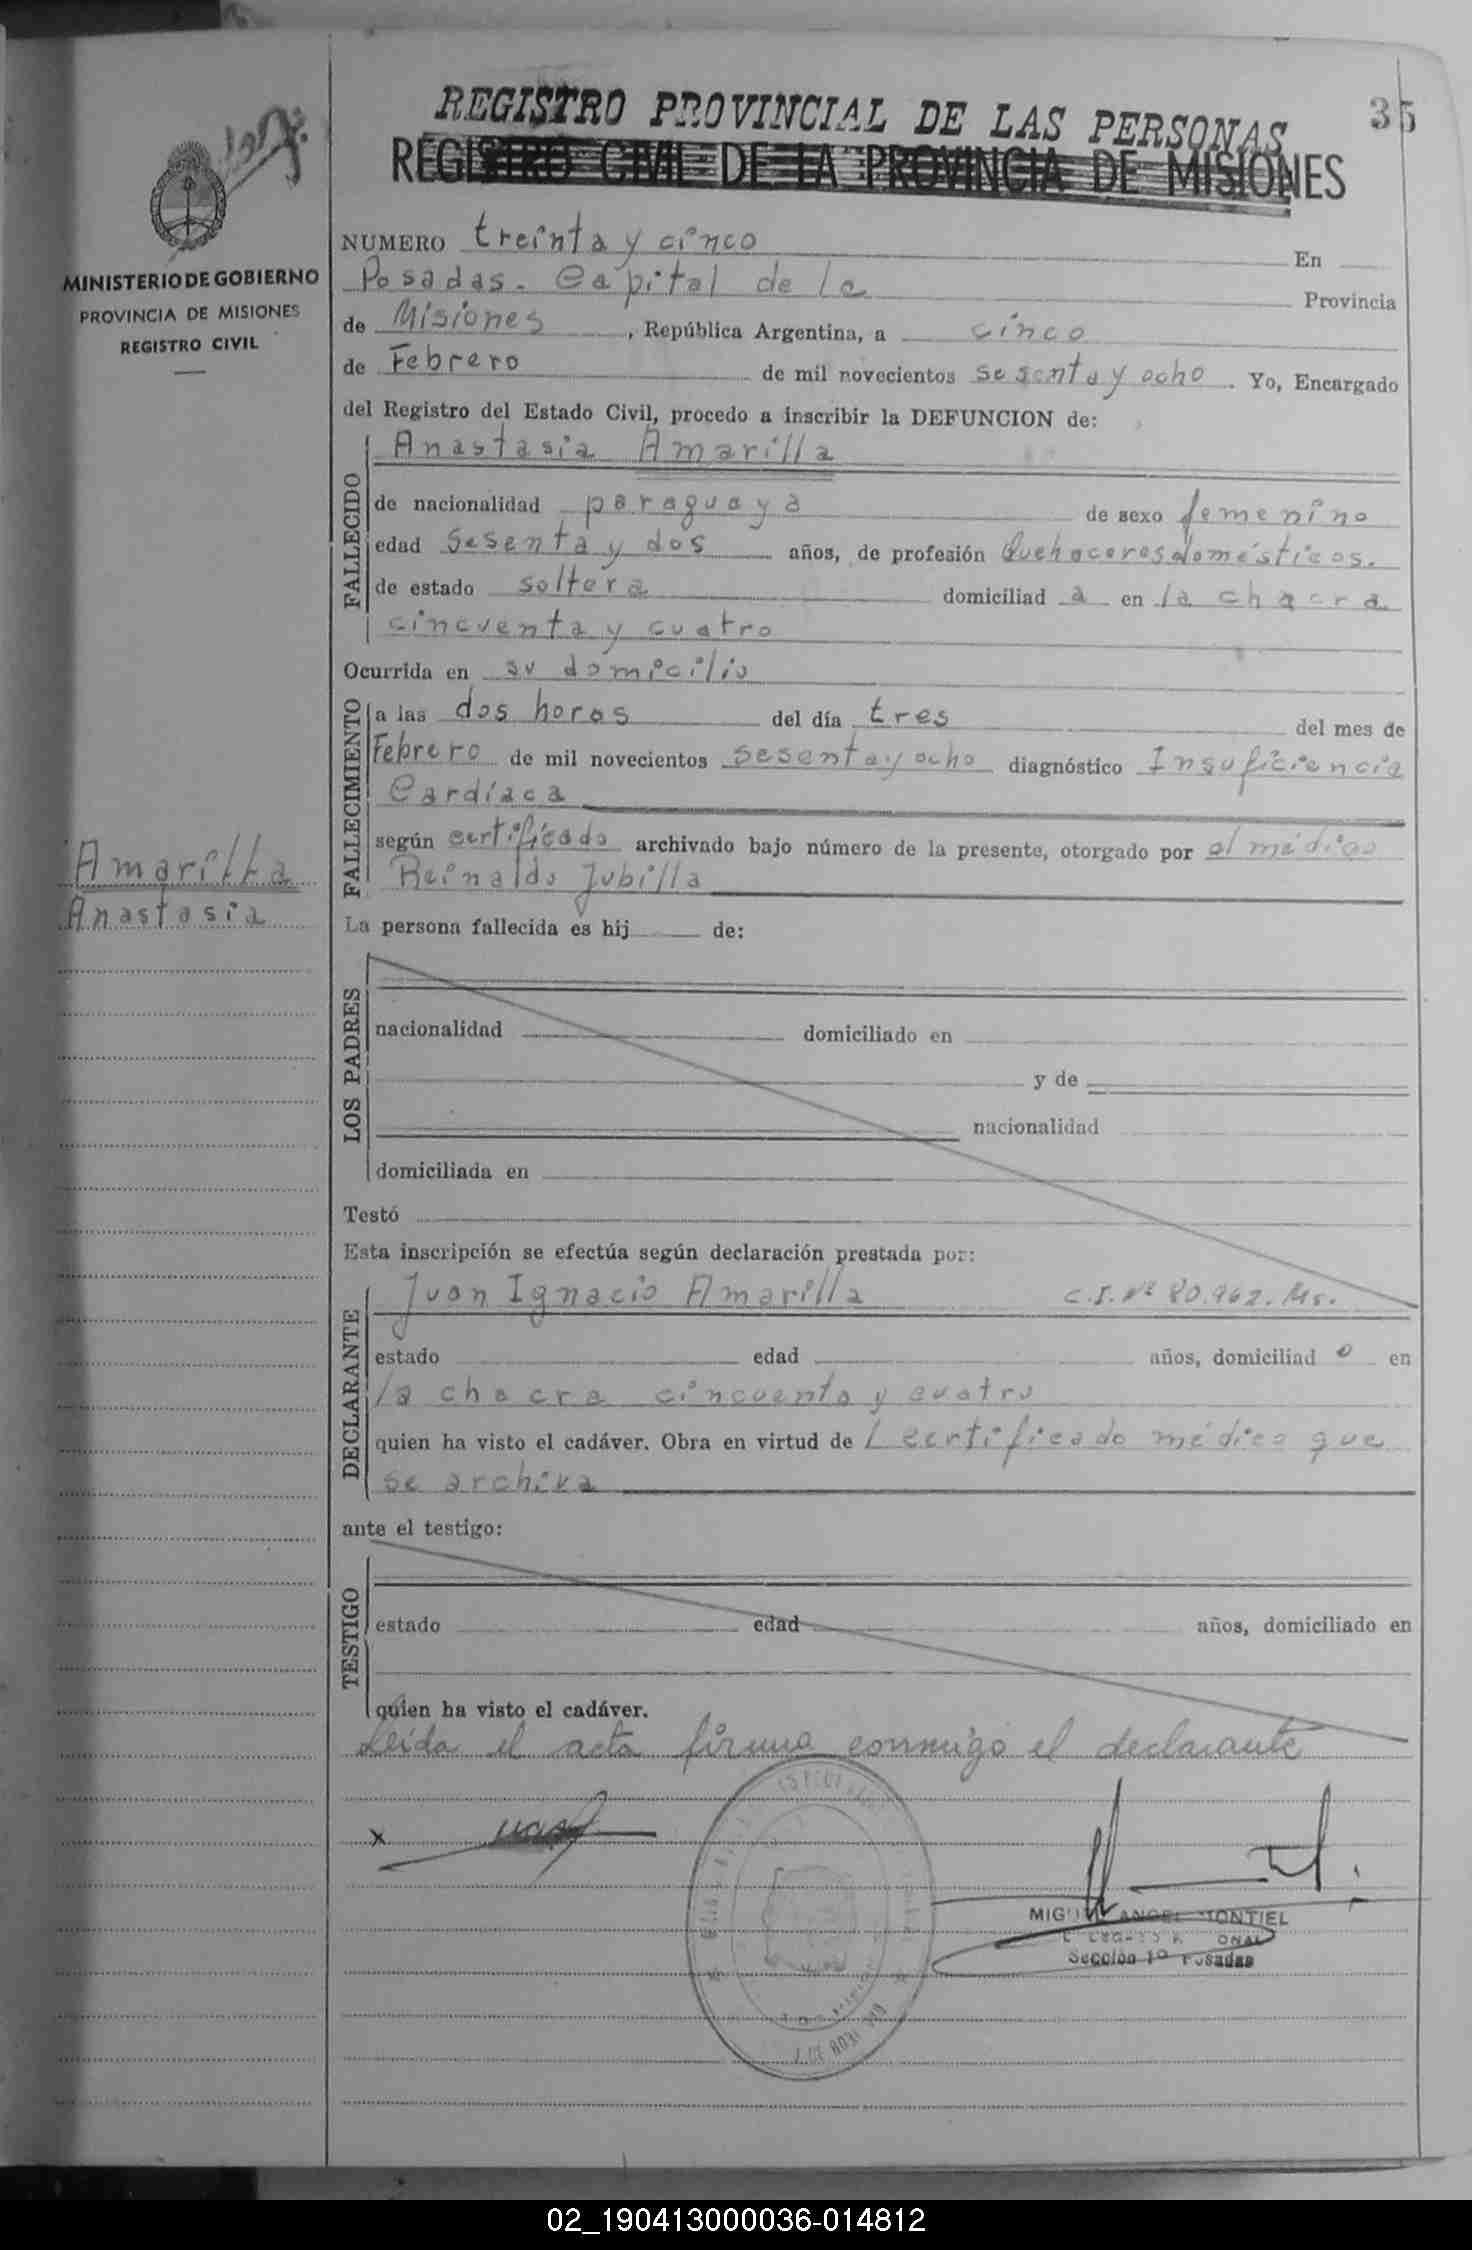 35
REGISTRO PROVINCIAL DE LAS PERSONAS
REGISTRO CIVIL DE LA PROVINCIA DE MISIONES
MINISTERIO DE GOBIERNO
PROVINCIA DE MISIONES
REGISTRO CIVIL
NUMERO treinta y cinco En
Posadas. Capital de la Provincia
de Misiones, República Argentina, a cinco
de Febrero de mil novecientos sesenta y ocho. Yo, Encargado
del Registro del Estado Civil, procedo a inscribir la DEFUNCION de:
FALLECIDO
Anastasia Amarilla
de nacionalidad paraguaya de sexo femenino
edad sesenta y dos años, de profesión Quehaceres domésticos.
de estado soltera domiciliad a en la chacra
cincuenta y cuatro
Ocurrida en su domicilio
FALLECIMIENTO
a las dos horas del día tres del mes de
Febrero de mil novecientos sesenta y ocho diagnóstico Insuficiencia
Cardíaca
según certificado archivado bajo número de la presente, otorgado por el médico
Reinaldo Jubilla
Amarilla
Anastasia
La persona fallecida es hij de:
LOS PADRES
nacionalidad domiciliado en
y de
nacionalidad
domiciliada en
Testó
Esta inscripción se efectúa según declaración prestada por:
DECLARANTE
Juan Ignacio Amarilla C.I. Nº 80.962. Ms.
estado edad años, domiciliad o en
la chacra cincuenta y cuatro
quien ha visto el cadáver. Obra en virtud de l certificado médico que
se archiva
ante el testigo:
TESTIGO
estado edad años, domiciliado en
quien ha visto el cadáver.
Leída el acta firma conmigo el declarante
x
MIGUEL ANGEL MONTIEL
Sección 1º Posadas
02_190413000036-014812